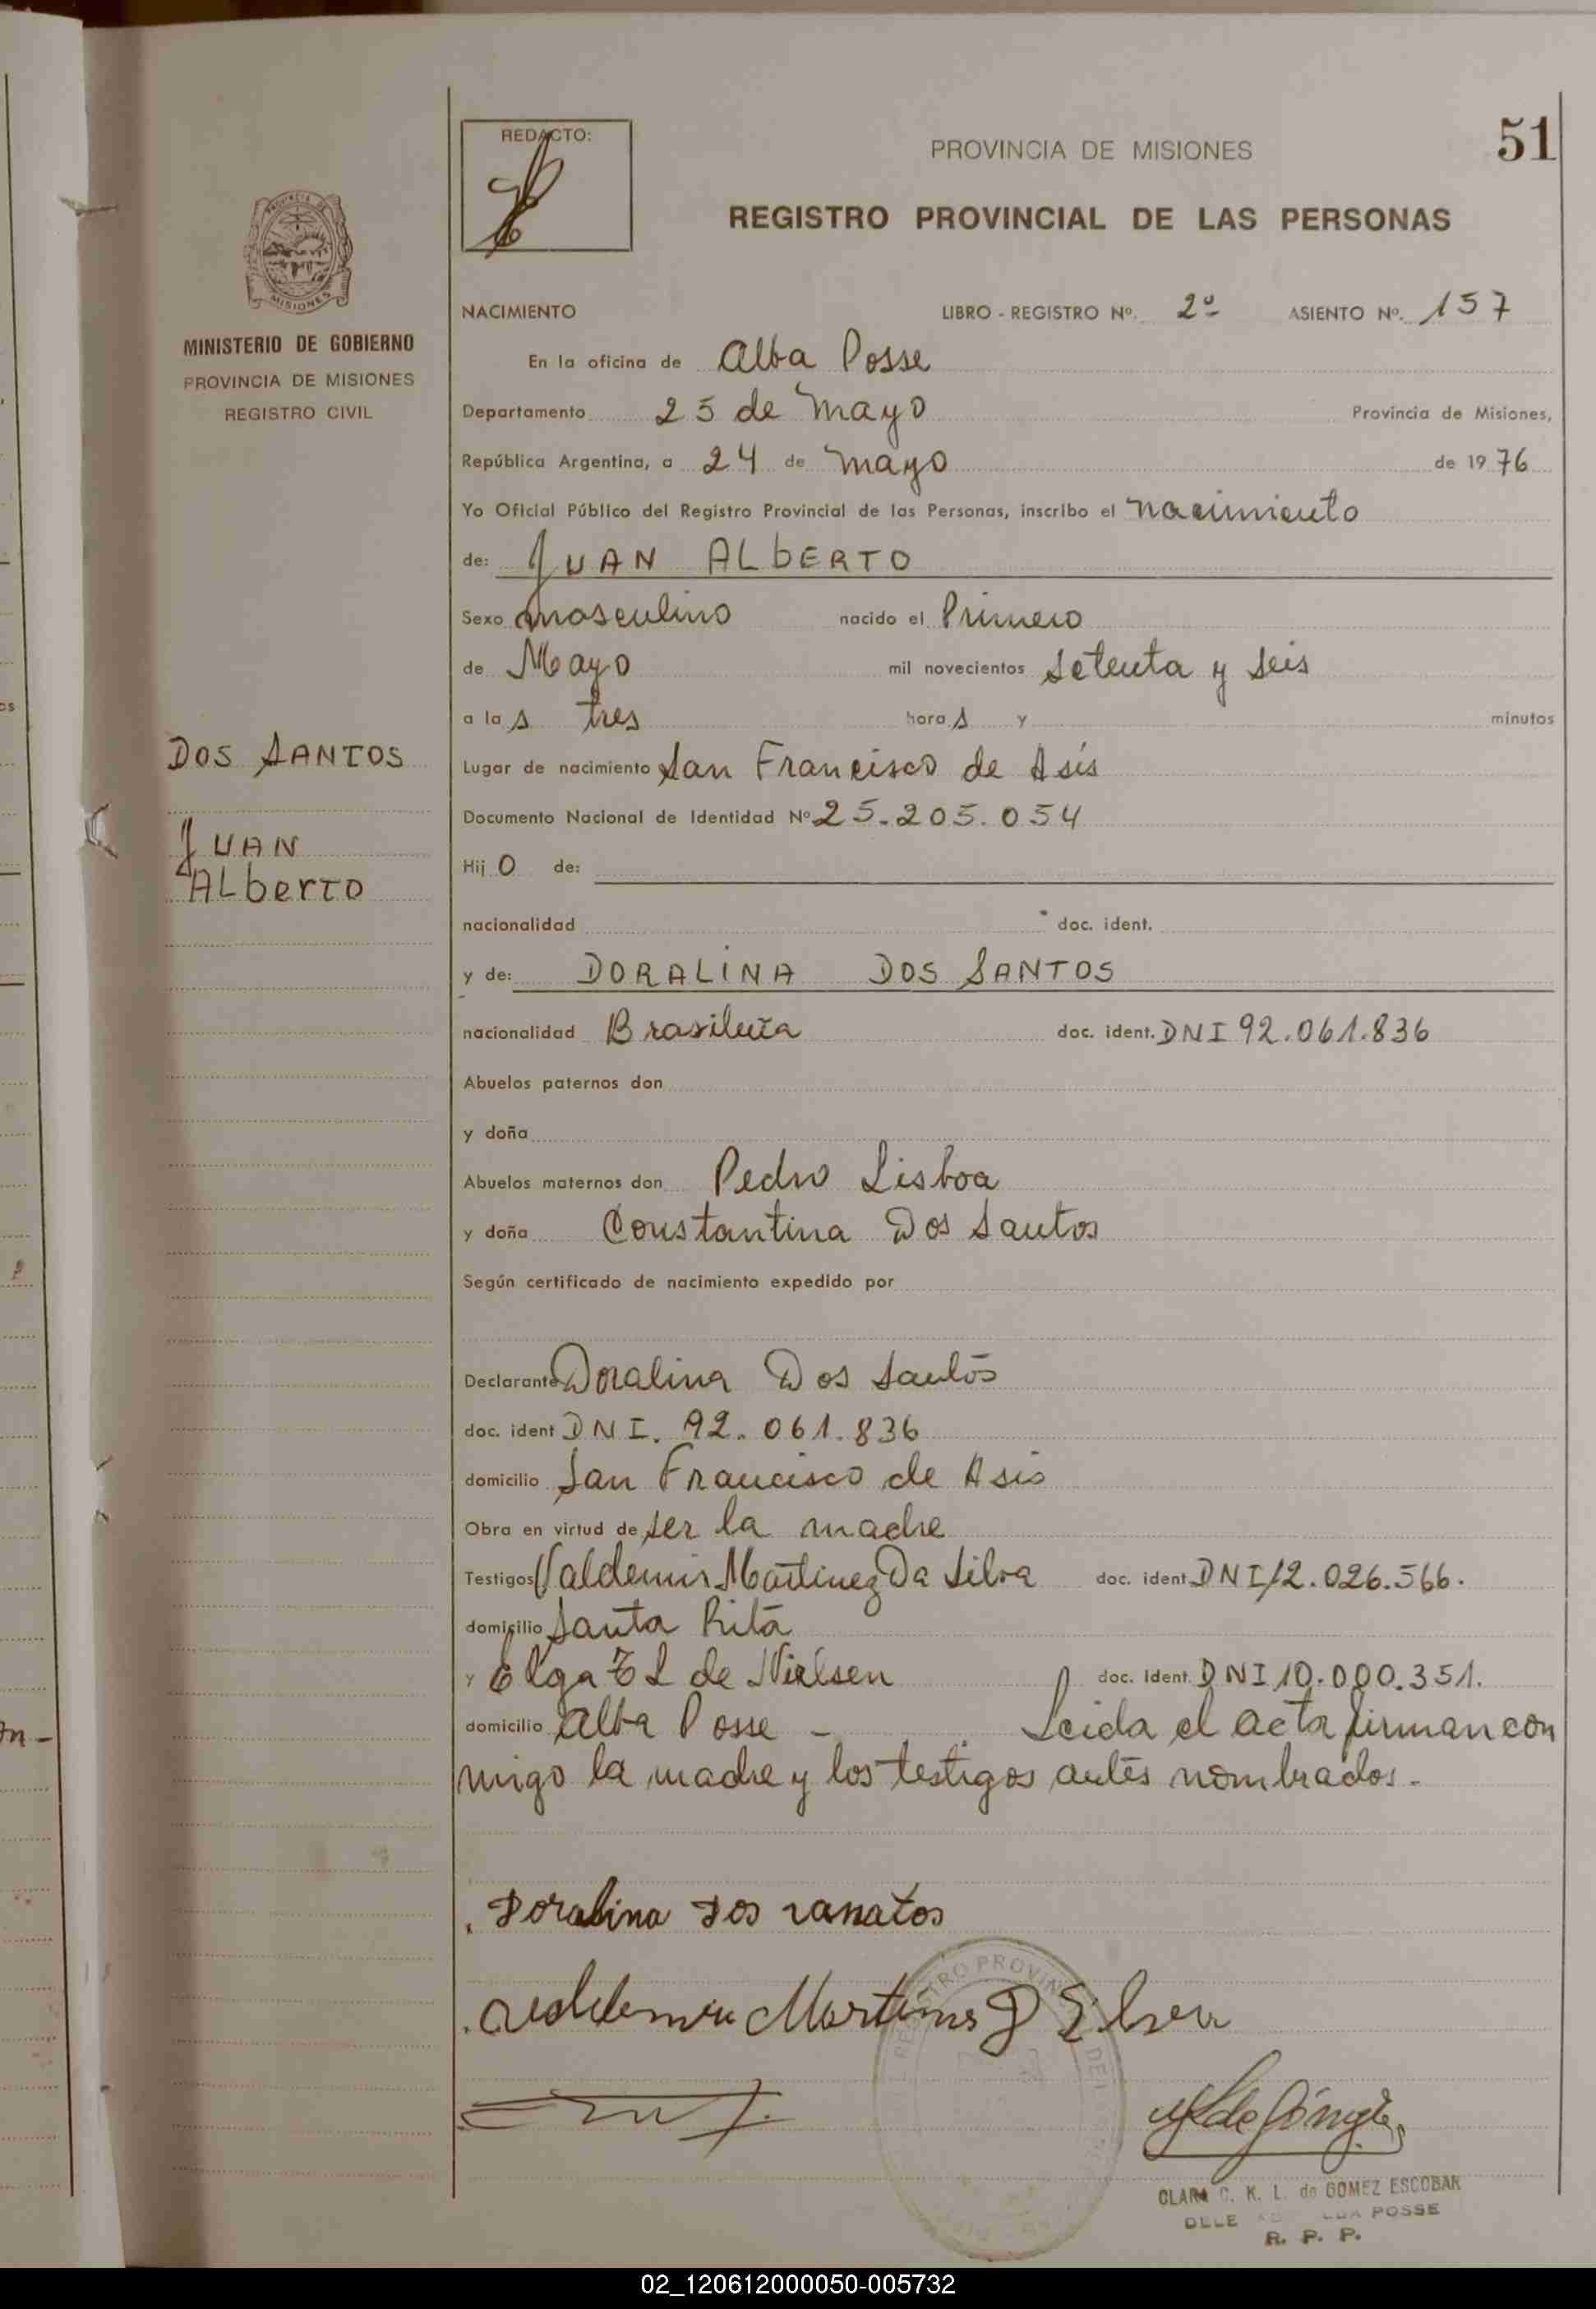 51
REDACTO:
PROVINCIA DE MISIONES
REGISTRO PROVINCIAL DE LAS PERSONAS
MISIONES
MINISTERIO DE GOBIERNO
PROVINCIA DE MISIONES
REGISTRO CIVIL
NACIMIENTO LIBRO - REGISTRO Nº. 2º ASIENTO Nº. 157
En la oficina de Alba Posse
Departamento 25 de Mayo Provincia de Misiones,
República Argentina, a 24 de Mayo de 1976
Yo Oficial Público del Registro Provincial de las Personas, inscribo el nacimiento
de: JUAN ALBERTO
Sexo masculino nacido el Primero
de Mayo mil novecientos setenta y seis
a las tres horas y minutos
DOS SANTOS
JUAN
ALberTO
Lugar de nacimiento San Francisco de Asís
Documento Nacional de Identidad Nº 25.205.054
Hijo de:
nacionalidad doc. ident.
y de: DORALINA DOS SANTOS
nacionalidad Brasileña doc. ident. DNI 92.061.836
Abuelos paternos don
y doña
Abuelos maternos don Pedro Lisboa
y doña Constantina Dos Santos
Según certificado de nacimiento expedido por
Declarante Doralina Dos Santos
doc. ident DNI. 92.061.836
domicilio San Francisco de Asis
Obra en virtud de ser la madre
Testigos Valdemir Martinez Da Silva doc. ident. DNI 12.026.566.
domicilio Santa Rita
y Elga E L de Nielsen doc. ident. DNI 10.000.351.
domicilio Alba Posse - Leida el acta firman con
migo la madre y los testigos antes nombrados.-
Doralina Dos sanatos
Martins D Silva
CLARA C. K. L. de GOMEZ ESCOBAR
POSSE
R. P. P.
02_120612000050-005732